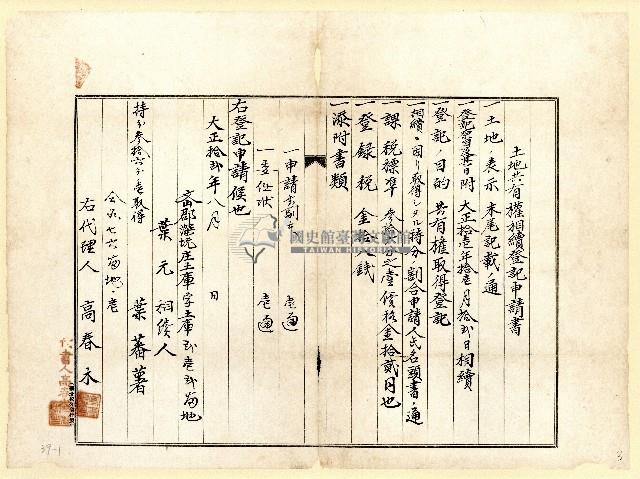 土地共有權相續登記申請書
一土地ノ表示 末尾記載ノ通
一登記原因及其日附 大正拾壱年拾壱月拾弐日相續
一登記ノ目的 共有權取得登記
一相續ニ因リ取得シタル持分ノ割合申請人氏名頭書ノ通
一課税標準 參拾六分之壹價格金拾貳円也
一登録税 金拾
錢
一添附書類
一申請書副本 壱通
一委任状 壱通
右登記申請候也
大正拾弐年八月 日
庄土庫字土庫
番地
葉元 相續人
持分參拾六分ノ壱取得 葉蕃薯
右代理人 高春木
代書人高
國史館臺灣文獻館
TAIWAN HISTORICA
39-1
3